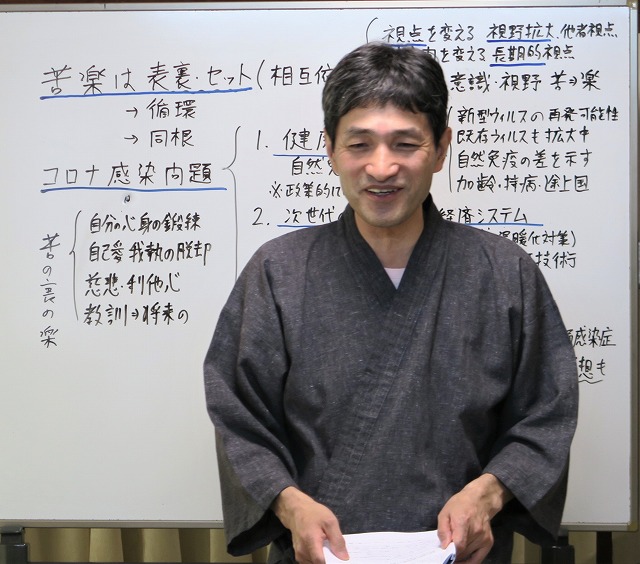 視点を変える 視野拡大・他者視点
を変える 長期的視点
苦楽は表裏・セット(相互
意識・視野 苦⇒楽
→ 循環
→ 同根
コロナ感染問題
自分の心身の鍛練
自己愛・我執の脱却
慈悲・利他心
教訓⇒将来の
苦の裏の楽
1. 健
自然
※政策的に
新型ウィルスの再発可能性
既存ウィルスも拡大中
自然免疫の差を示す
加齢・持病・途上国
2. 次世代
経済システム
暖化対策)
技術
感染症
想も